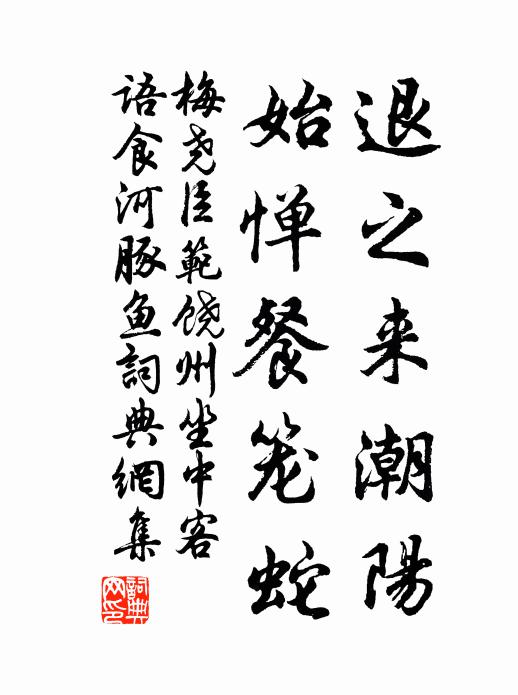 退之来潮陽
始惮餐笼蛇
梅尧臣範饶州坐中客
语食河豚鱼詞典網集
詞典网印